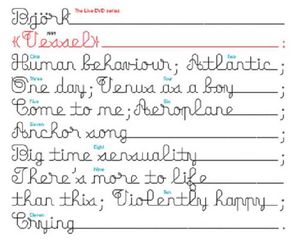 Björk The Live DVD series
1994
{Vessel} ;
One Two
Human behaviour; Atlantic;
Three Four
One day; Venus as a boy ;
Five Six
Come to me; Aeroplane ;
Seven
Anchor song ;
Eight
Big time sensuality ;
Nine
There's more to life
Ten
than this; Violently happy;
Eleven
Crying .